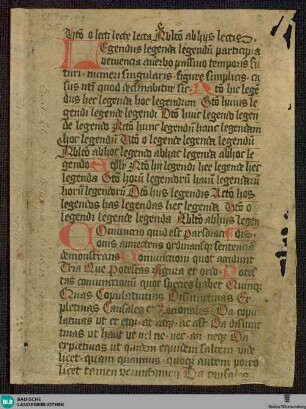 Vcto o lecti lecte lecta Abltō ab hijs lectis
Legendus legenda legendū participia
veniencia a verbo passiuo temporis fu
turi numeri singularis figure simplicis ca
sus ntī quod declinabitur sic Ntō hic lege
dus hec legenda hoc legendum Gtō huius le
gendi legende legendi Dtō huic legendo legen
de legendo Actō hunc legendū hanc legendam
hoc legendū Vctō o legende legenda legendū
Abltō ab hoc legendo ab hac legenda ab hoc le
gendo Et pltr Ntō hij legendi hee legende hec
legenda Gtō horū legendorū harū legendarū
horū legendorū Dtō hijs legendis Actō hos
legendos has legendas hec legenda Vctō o
legendi legende legenda Abltō ab hijs legen
Coniunctio quid est Pars oracōis
onis annectens ordinansque sentenciā
demonstrans Coniunctioni quot accidunt
Tria Que Potestas figura et ordo Potes
tas coniunctionū quot species habet Quinque
Quas Copulatiuas Disiunctiuas Ex
pletiuas Causales et Racionales Da copu
latiuas vt et etque at atque ac ast Da disiunc
tiuas vt haut vt vel ne nec an neque Da
expletiuas vt quidem equidem saltem vide
licet quam quamuis quoque autem porro
licet tamen Da causales
BLB BADISCHE
LANDESBIBLIOTHEK
Baden-Württemberg